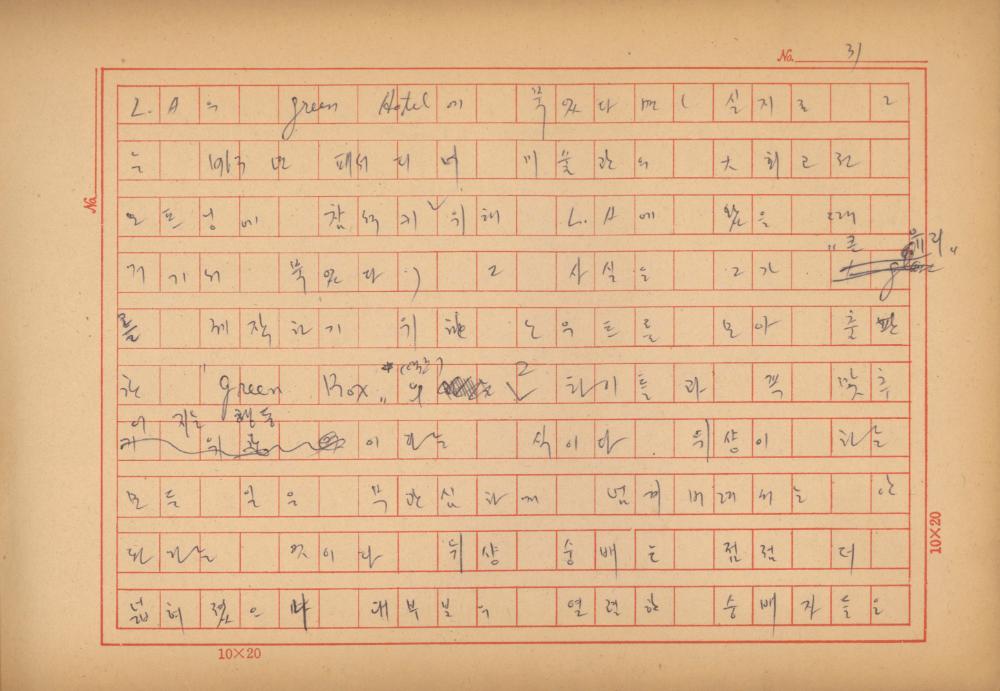 No. 31
L.A의 green Hotel에 묵었다면 ( 실지로 그
는 1963년 패서디너 미술관의 大회고전
오프닝에 참석키 위해 L.A에 왔을 때
"큰 유리"
거기서 묵었다.) 그 사실을 그가
를 제작하기 위한 노우트를 모아 출판
한 "green Box" (역주) 의 2 하이들과 꼭 맞추
어 지는 행동
이라는 식이다. 뒤샹이 하는
모든 일은 무관심하게 넘겨버려서는 안
된다는 것이다. 뒤샹 숭배는 점점 더
넓혀졌으며 대부분의 열렬한 숭배자들을
No.
10×20
10×20